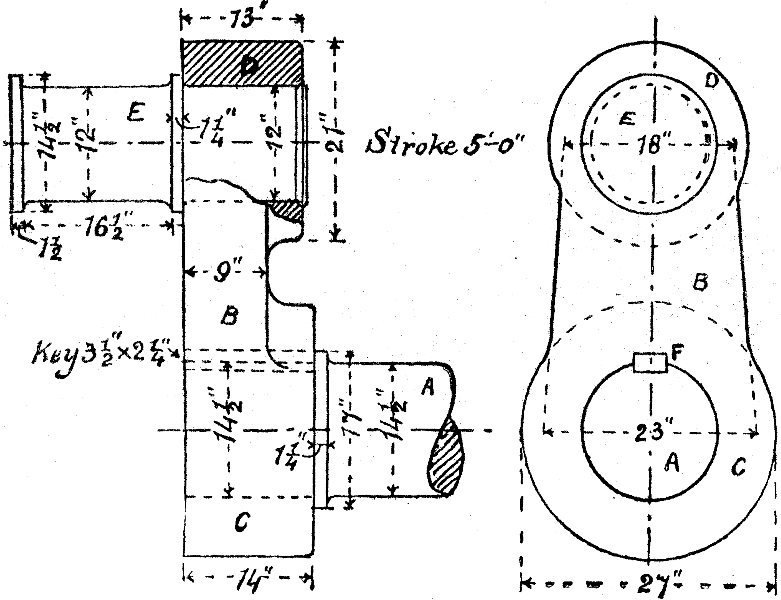 13"
D
E
14½"
12"
1¼"
12"
21"
Stroke 5'-0"
16½"
1½
9"
B
Key 3½" × 2¼"
14½"
1¼"
17"
14½"
A
C
14"
D
E
18"
B
F
23"
A
C
27"